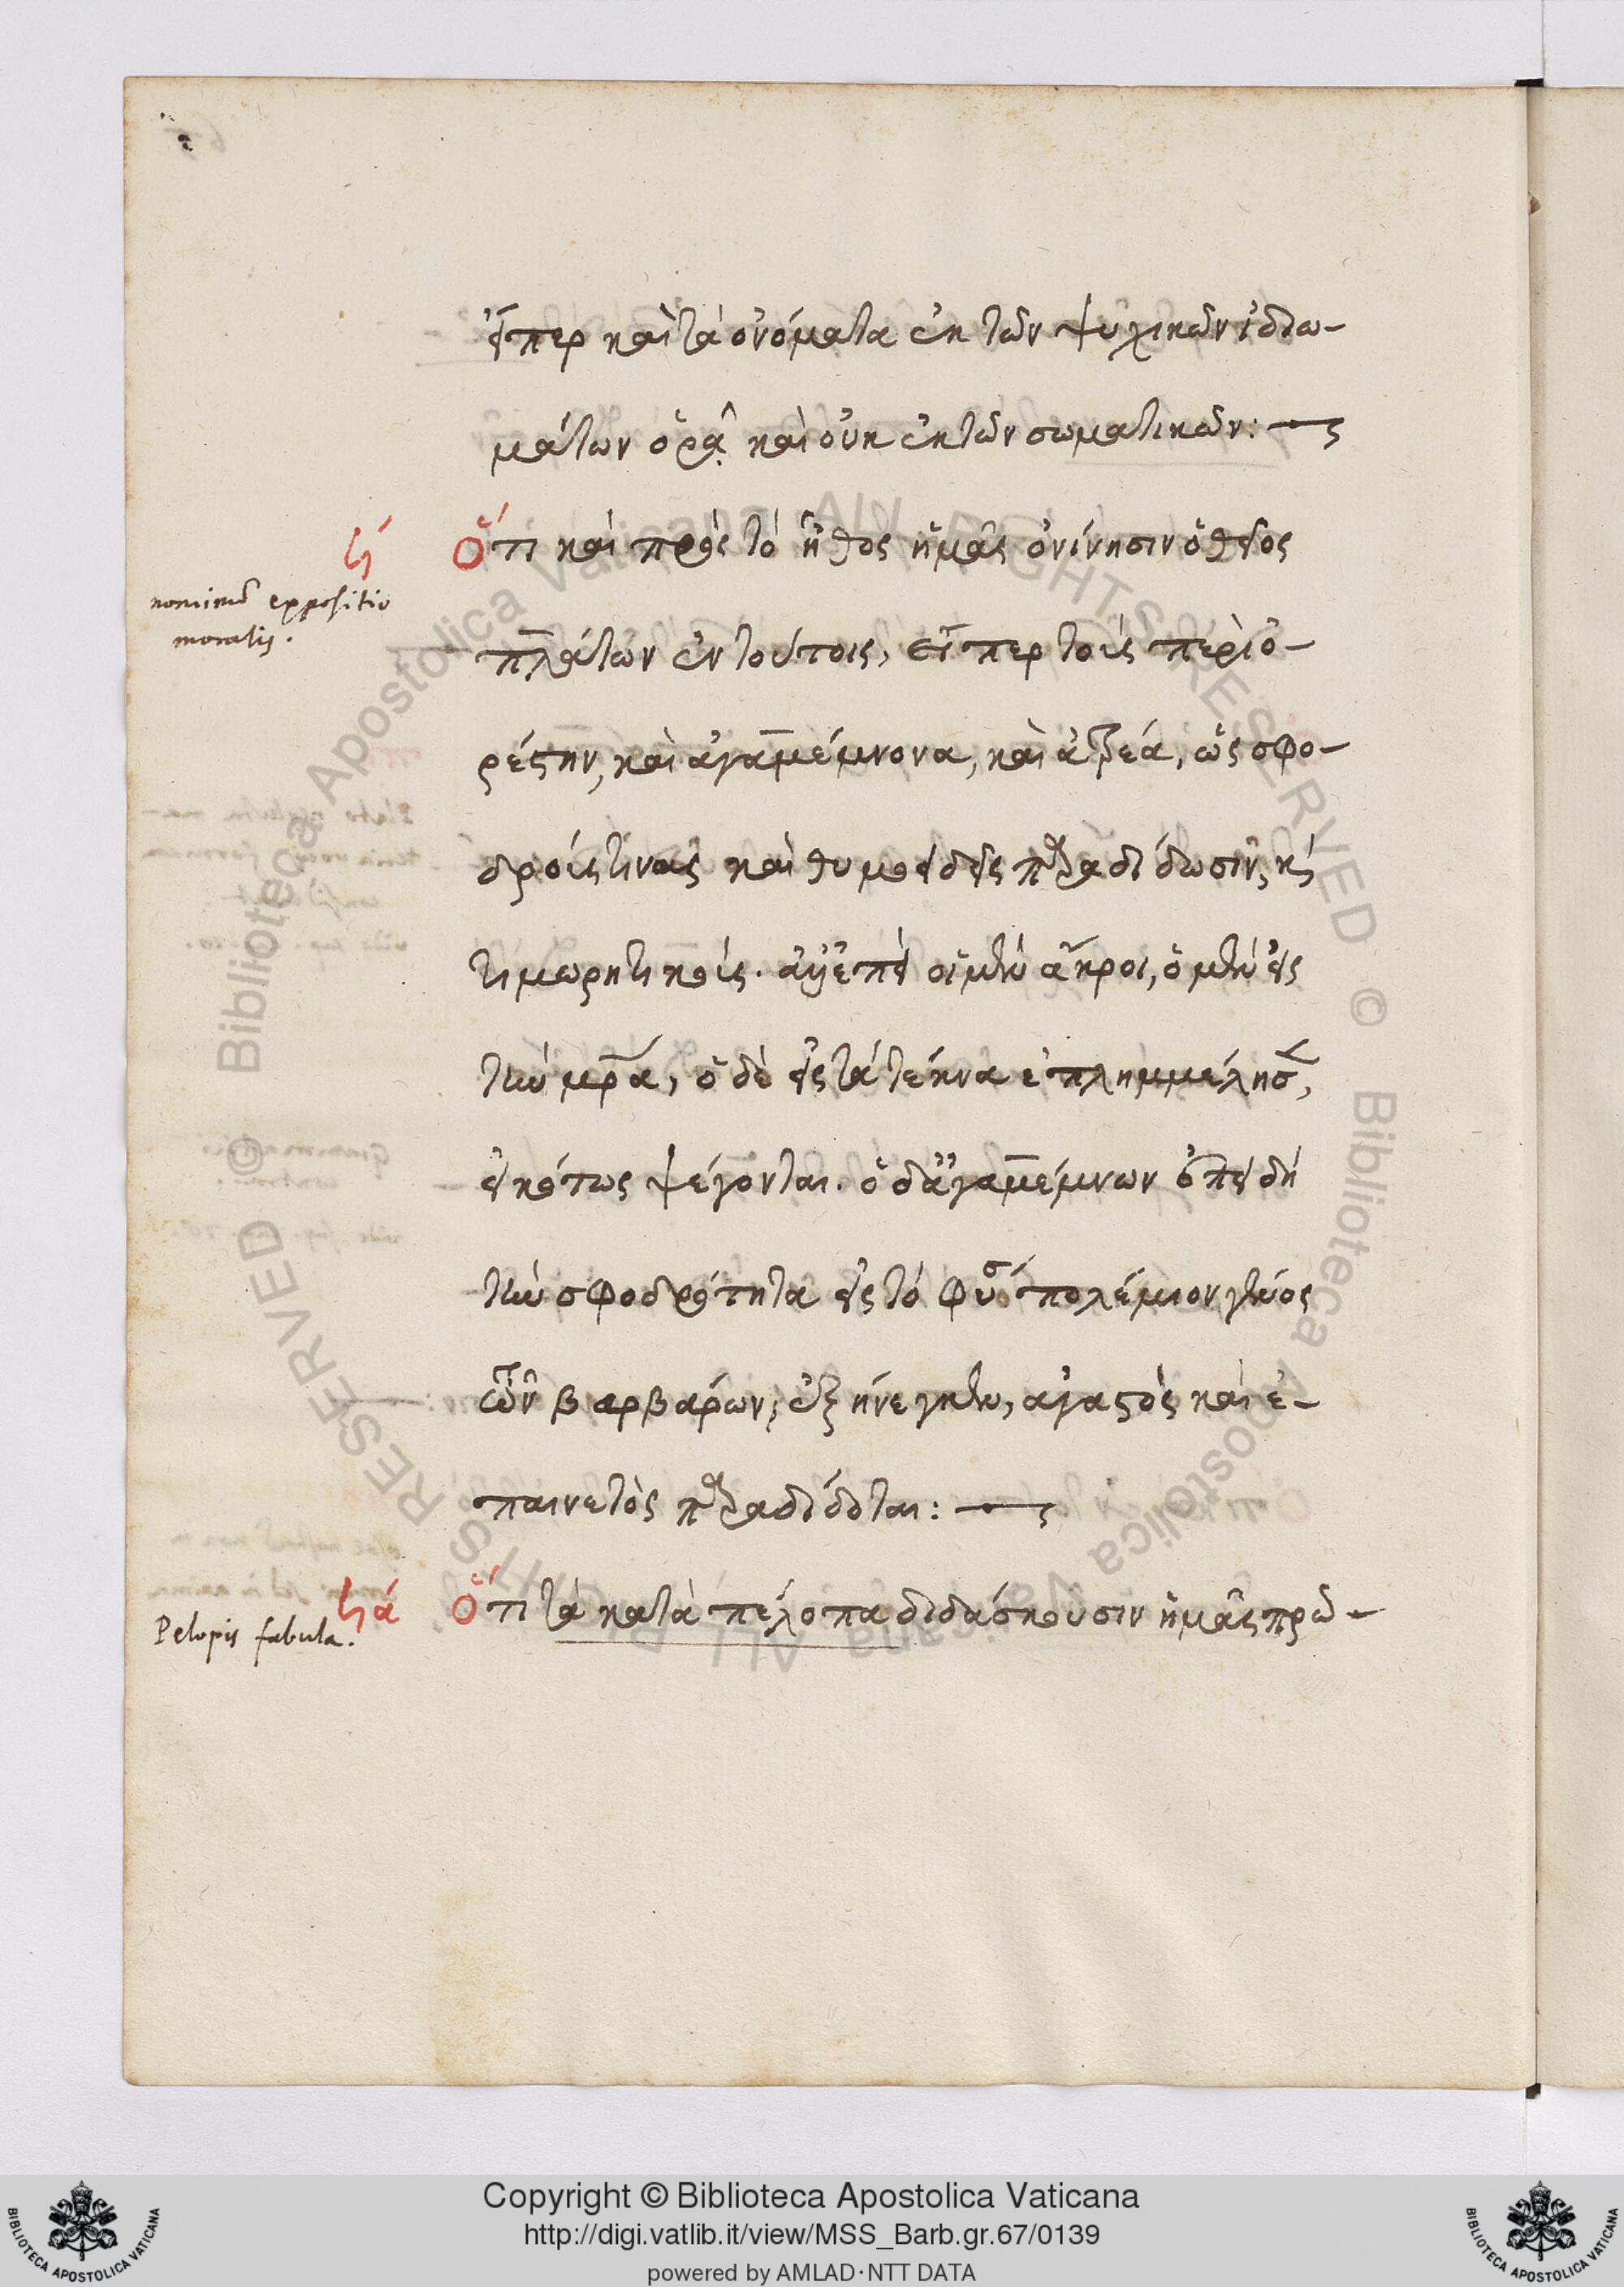 εἴπερ καὶ τὰ ὀνόματα ἐκ τῶν ψυχικῶν ἰδιω-
μάτων ὁρᾷ καὶ οὐκ ἐκ τῶν σωματικῶν:
ϟ
Ὅτι καὶ πρὸς τὸ ἦθος ἡμᾶς ὀνίνησιν ὁ θεῖος
nominū expositio
moralis.
πλάτων ἐν τούτοις, εἴπερ τοὺς περὶ ὀ-
ρέστην, καὶ ἀγαμέμνονα, καὶ ἀτρέα, ὡς σφο-
δρούς τινας καὶ θυμοειδεῖς παραδίδωσιν, κ
τιμωρητικούς. ἀλλ' ἐπεὶ οἱ μὲν ἄκροι, ὁ μὲν εἰς
τὴν μρ̅α, ὁ δὲ εἰς τὰ τέκνα ἐπλημμέλησ,
εἰκότως ψέγονται. ὁ δ' ἀγαμέμνων ἐπειδὴ
τὴν σφοδρότητα εἰς τὸ φύσ πολέμιον γένος
τῶν βαρβάρων, ἐξήνεγκεν, ἀγαστὸς καὶ ἐ-
παινετὸς παραδίδοται:
ϟα
Ὅτι τὰ κατὰ πέλοπα διδάσκουσιν ἡμᾶς πρῶ-
Pelopis fabula.
Copyright © Biblioteca Apostolica Vaticana
http://digi.vatlib.it/view/MSS_Barb.gr.67/0139
powered by AMLAD·NTT DATA
BIBLIOTECA APOSTOLICA VATICANA
BIBLIOTECA APOSTOLICA VATICANA
Biblioteca Apostolica Vaticana ALL RIGHTS RESERVED © Biblioteca Apostolica Vaticana ALL RIGHTS RESERVED ©